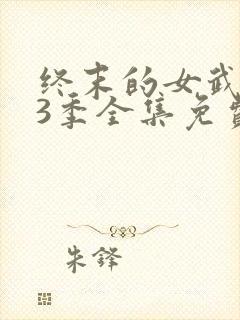 终末的女武
3季全集免费
朱铎